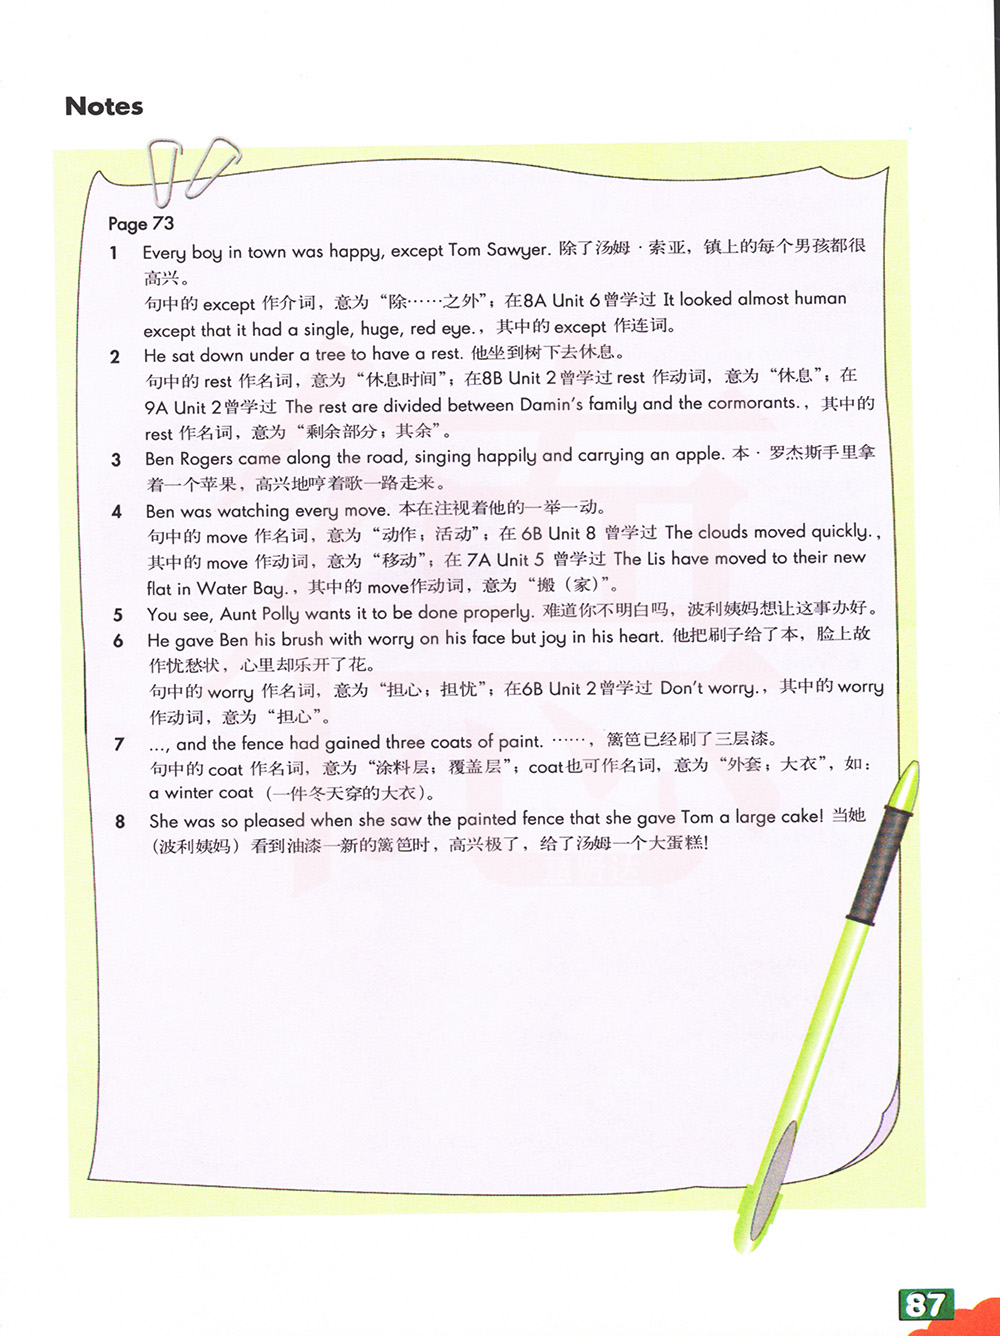 Notes
Page 73
1 Every boy in town was happy, except Tom Sawyer. 除了汤姆·索亚，镇上的每个男孩都很
高兴。
句中的 except 作介词，意为“除……之外”；在8A Unit 6曾学过 It looked almost human
except that it had a single, huge, red eye.，其中的 except 作连词。
2 He sat down under a tree to have a rest. 他坐到树下去休息。
句中的 rest 作名词，意为“休息时间”；在8B Unit 2曾学过 rest 作动词，意为“休息”；在
9A Unit 2曾学过 The rest are divided between Damin's family and the cormorants.，其中的
rest 作名词，意为“剩余部分；其余”。
3 Ben Rogers came along the road, singing happily and carrying an apple. 本·罗杰斯手里拿
着一个苹果，高兴地哼着歌一路走来。
4 Ben was watching every move. 本在注视着他的一举一动。
句中的 move 作名词，意为“动作；活动”；在 6B Unit 8 曾学过 The clouds moved quickly.，
其中的 move 作动词，意为“移动”；在 7A Unit 5 曾学过 The Lis have moved to their new
flat in Water Bay.，其中的 move作动词，意为“搬（家）”。
5 You see, Aunt Polly wants it to be done properly. 难道你不明白吗，波利姨妈想让这事办好。
6 He gave Ben his brush with worry on his face but joy in his heart. 他把刷子给了本，脸上故
作忧愁状，心里却乐开了花。
句中的 worry 作名词，意为“担心；担忧”；在6B Unit 2曾学过 Don't worry.，其中的 worry
作动词，意为“担心”。
7 ..., and the fence had gained three coats of paint. ……，篱笆已经刷了三层漆。
句中的 coat 作名词，意为“涂料层；覆盖层”；coat也可作名词，意为“外套；大衣”，如：
a winter coat（一件冬天穿的大衣）。
8 She was so pleased when she saw the painted fence that she gave Tom a large cake! 当她
（波利姨妈）看到油漆一新的篱笆时，高兴极了，给了汤姆一个大蛋糕!
87